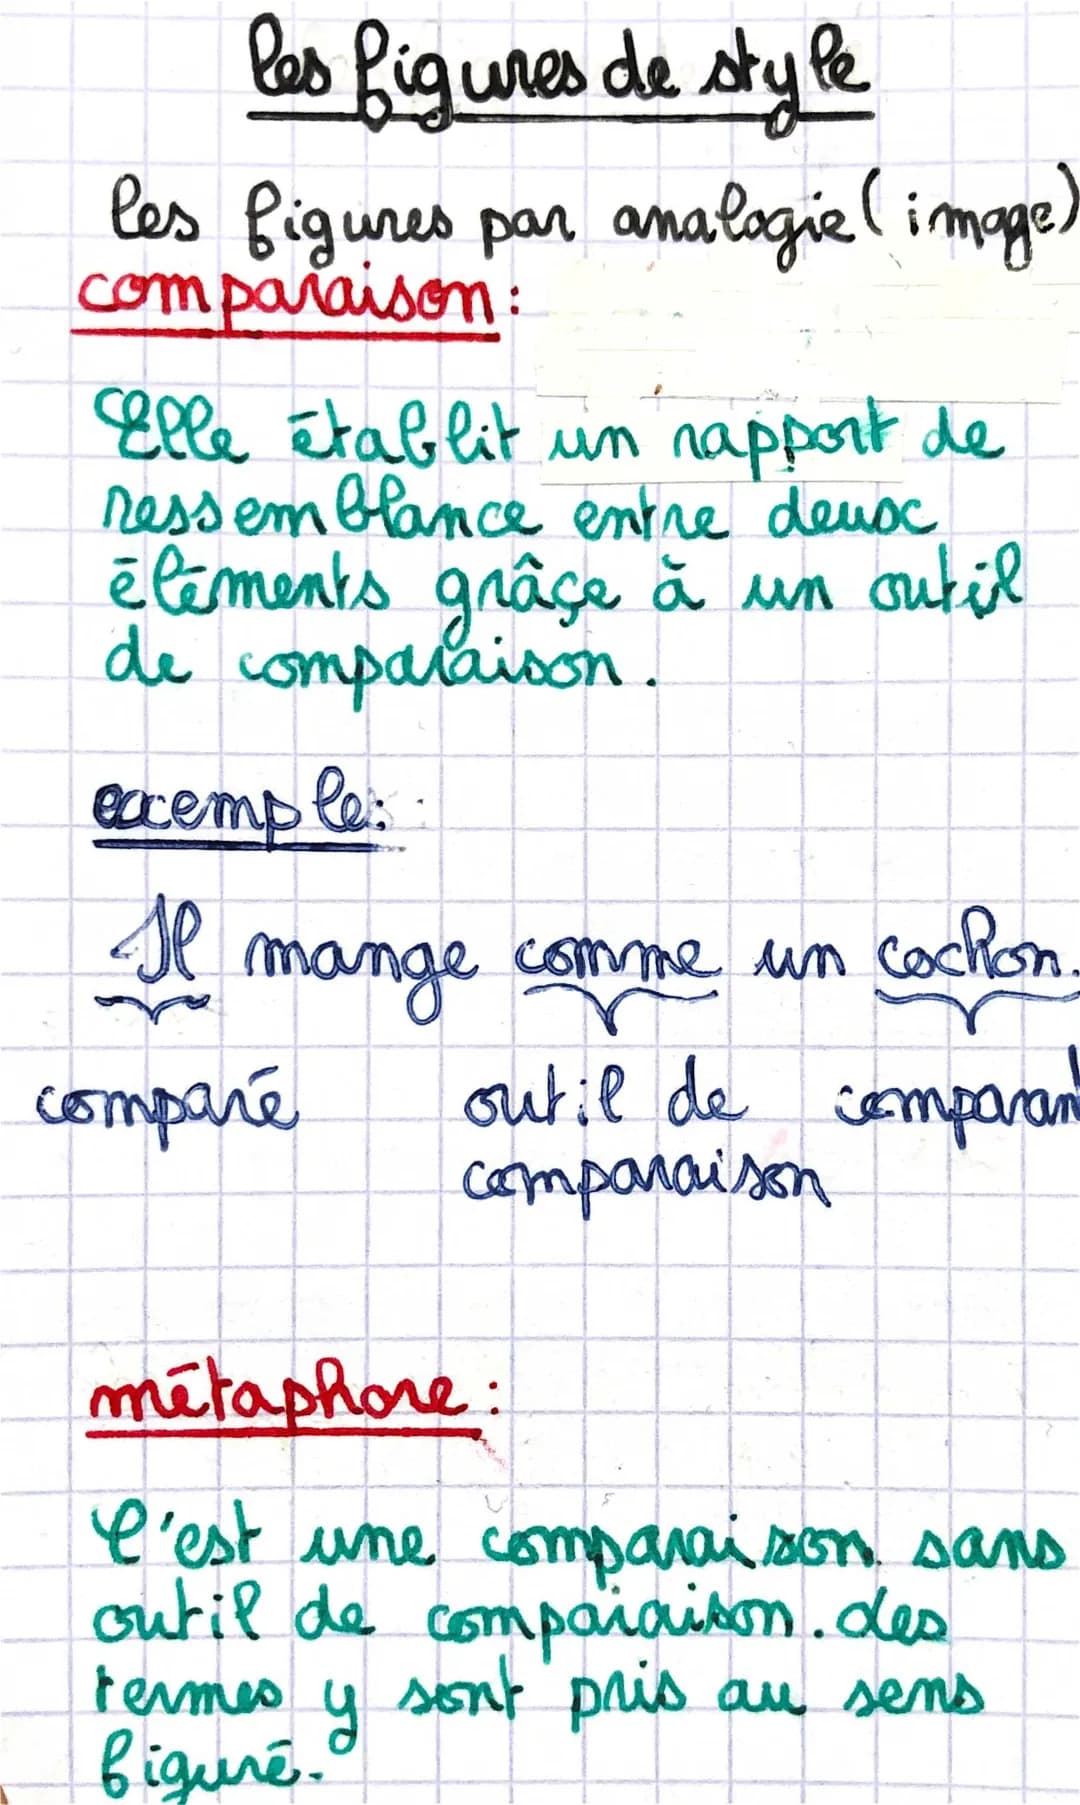 les figures de style
les figures par analogie (image)
comparaison :
Elle établit un rapport de
ressemblance entre deux
éléments grâce à un outil
de comparaison.
exemple :
Il mange comme un cochon.
comparé outil de comparant
comparaison
métaphore :
C'est une comparaison sans
outil de comparaison. des
termes y sont pris au sens
figuré.